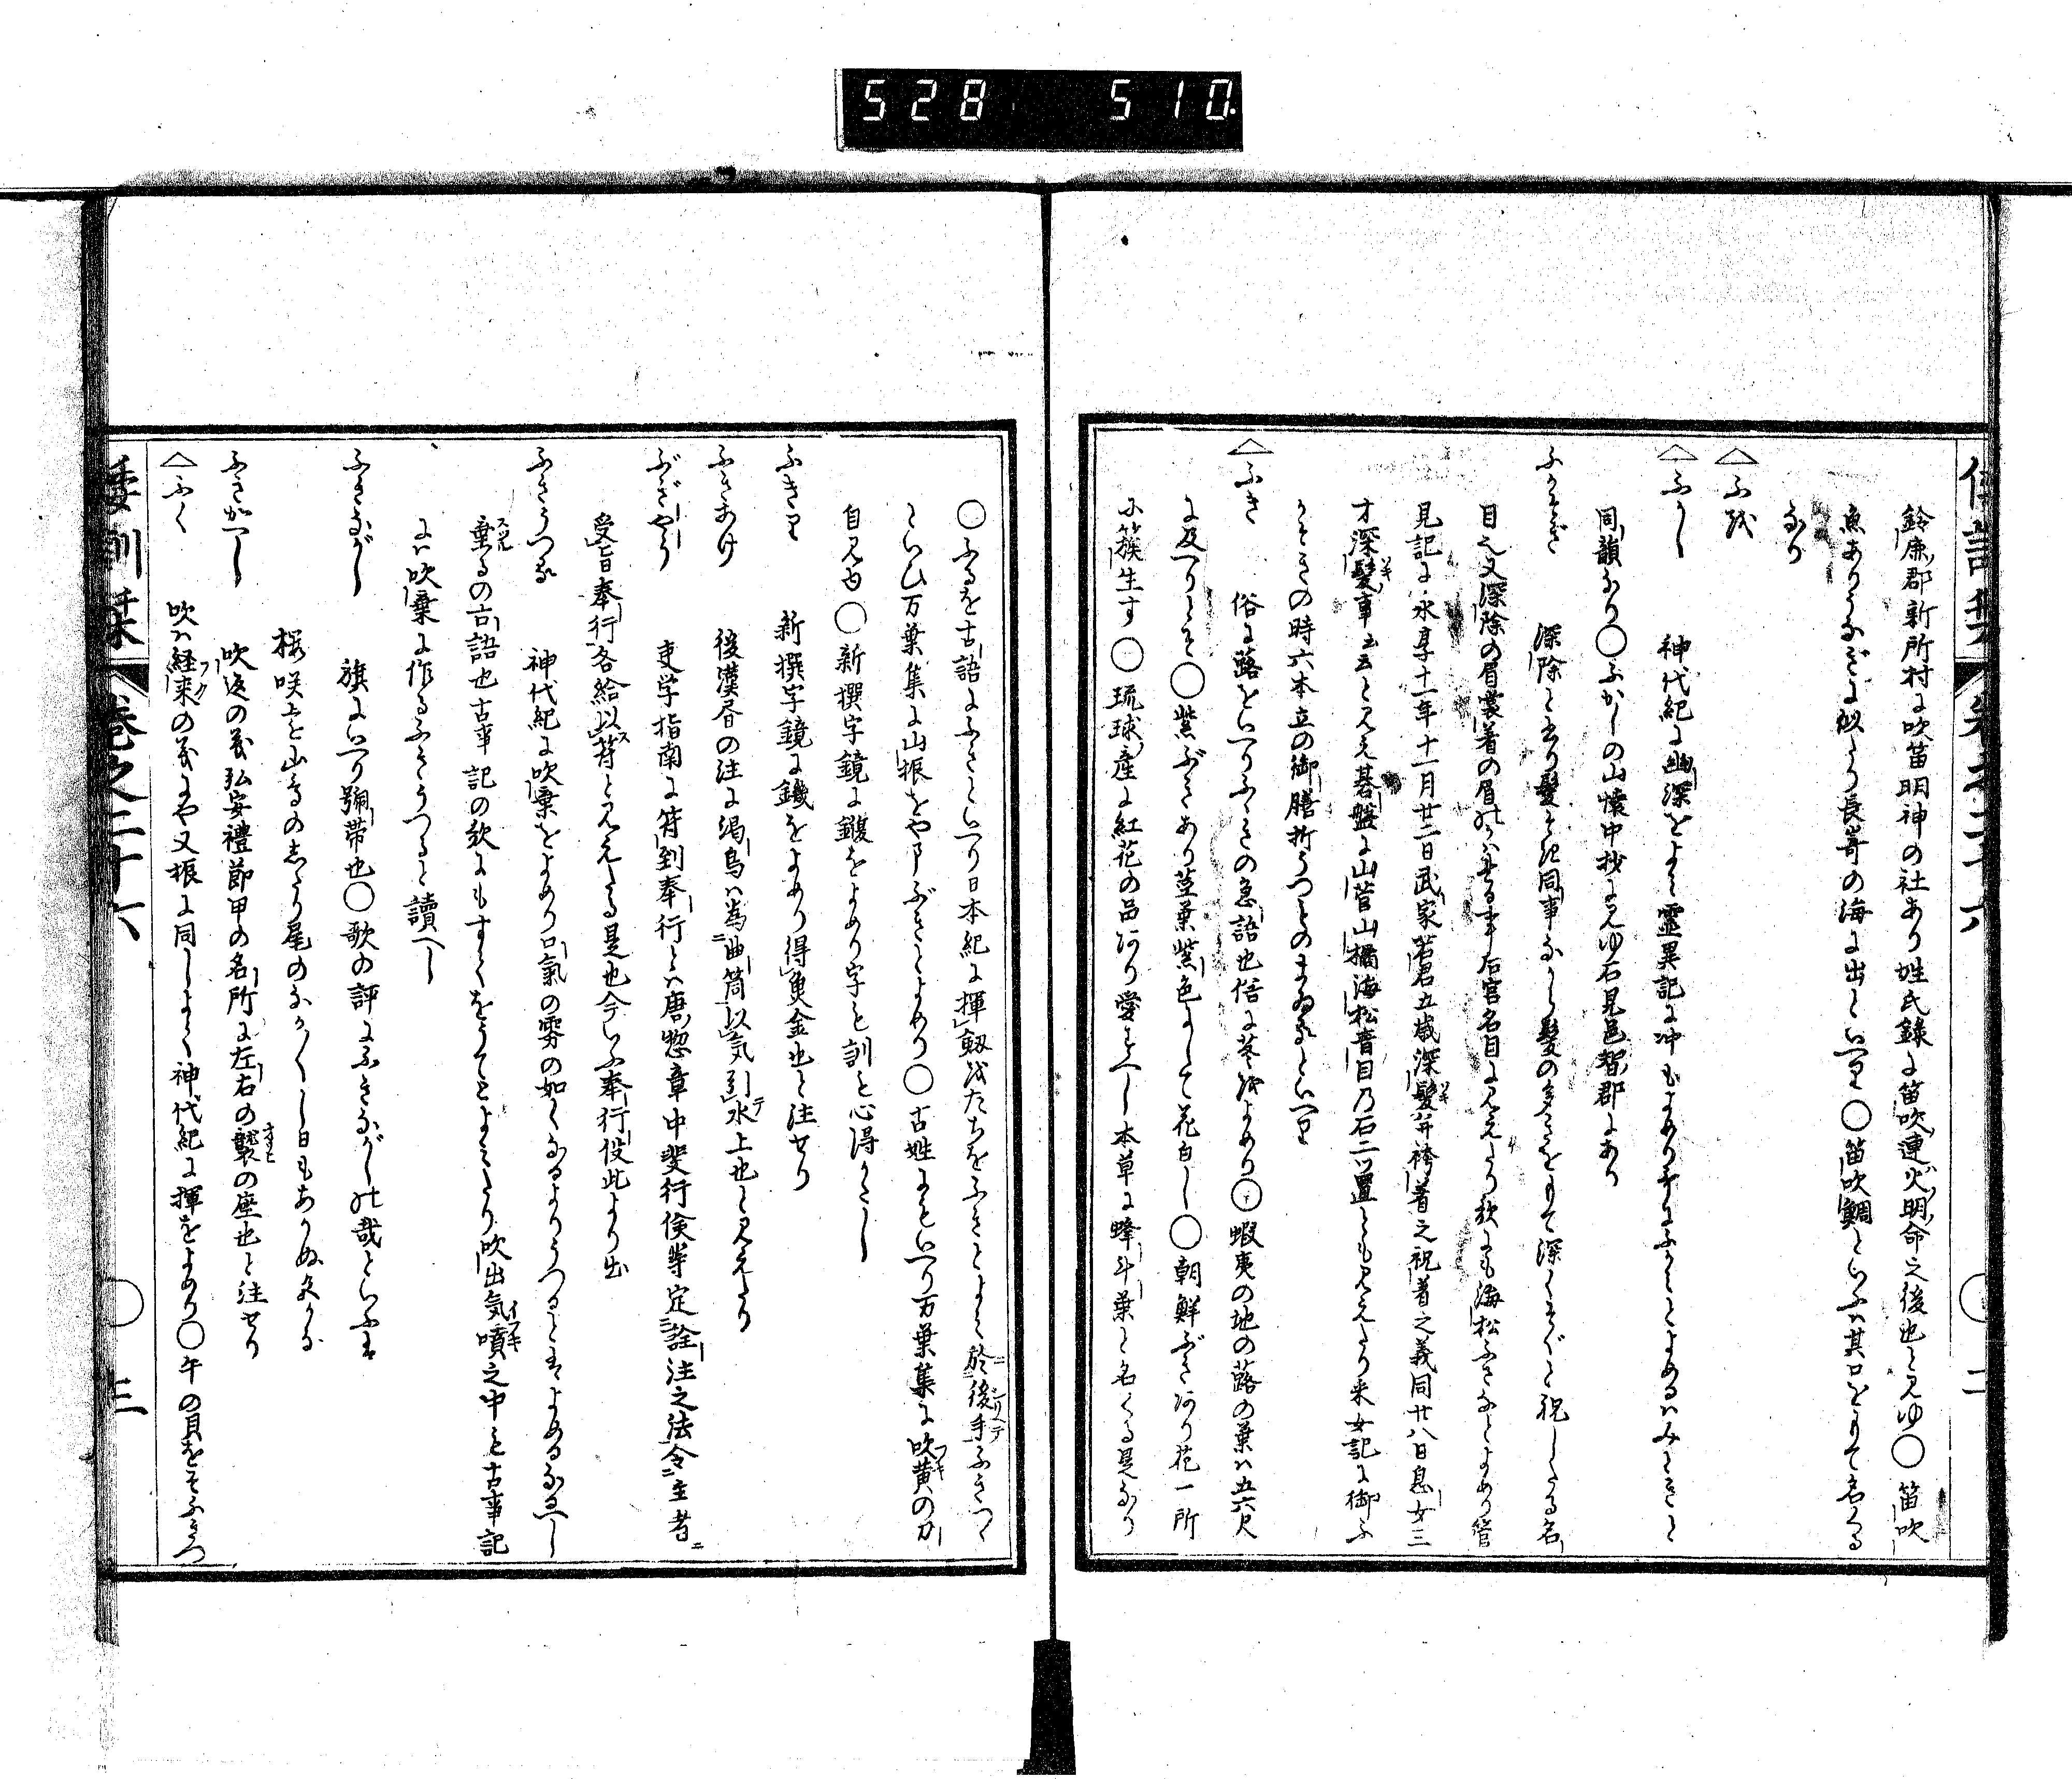 528 510
鈴鹿郡新所村に吹笛明神の社あり姓氏録に笛吹連火明命之後也と見ゆ○笛吹
魚ありうなぎに似たり長崎の海に出といへり○笛吹鯛といふハ其口をもて名くる
なり
△ふ
△ふかし 神代紀に幽深をよみ霊異記に冲もよめり
同韻なり○ふかしの山懐中抄に見ゆ石見邑智郡にあり
ふかそぎ 深除と書り髪そぎ同事ながら髪の多きをもて深くそぐと祝したる名
目也又深除の眉裳着の眉 后宮名目に見えたり歌にも海松ふさなどよめり管
見記に永享十一年十一月廿二日武家若君五歳深髪并袴着之祝着之義同廿八日息女三
才深髪事云云と見え碁盤に山菅山橘海松青目乃石二ツ置とも見えたり采女記に御ふ
かそきの時六本立の御膳折うつきのまゐるといへり
△ふき 俗に蕗をいへりふゝきの急語也倭 よめり○蝦夷の地の蕗の葉ハ五六尺
に及へりとそ○紫ぶきあり茎葉紫色にして花白し○朝鮮ぶきあり花一所
に簇生す○琉球産に紅花の品あり愛すへし本草に蜂斗葉と名くる是なり
○ふるを古語にふきといへり日本紀に揮劔をたちをふきとよみ於後手ふきつゝ
といひ万葉集に山振をやまぶきとよめり○古姓にもいへり万葉集に吹黄の刀
自見ゆ○新撰字鏡に鍑をよめり字を訓と心得かたし
ふきり 新撰字鏡に鐖をよめり得魚金也と注せり
ふきあけ 後漢書の注に渇烏ハ為曲筒以気引水上也と見えたり
ぶぎやう 吏学指南に符到奉行とハ唐惣章中斐行倹等定詮注之法令主者
受旨奉行各給以符と見えたる是也今いふ奉行役此より出
ふきうつる 神代紀に吹棄をよめり口氣の雰の如くなるよりうつるとはよめるなるへし
棄るの古語也古事記の歌にもすくをうてとよみたり吹出気噴之中を古事記
にハ吹棄に作るふきうつると讀へし
ふきながし 旗にいへり 帯也○歌の評にふきながしの哉といふは
桜咲遠山鳥のしたり尾のながくし日もあかぬ色かな
ふきかへし 吹返の義弘安禮節甲の名所に左右の襲の座也と注せり
△ふく 吹ハ経来の義にや又振に同しよく神代紀に揮をよめり○午の貝をそふきつ
倭訓栞 巻之二十六 ○ 三
巻之二十六 ○ 二